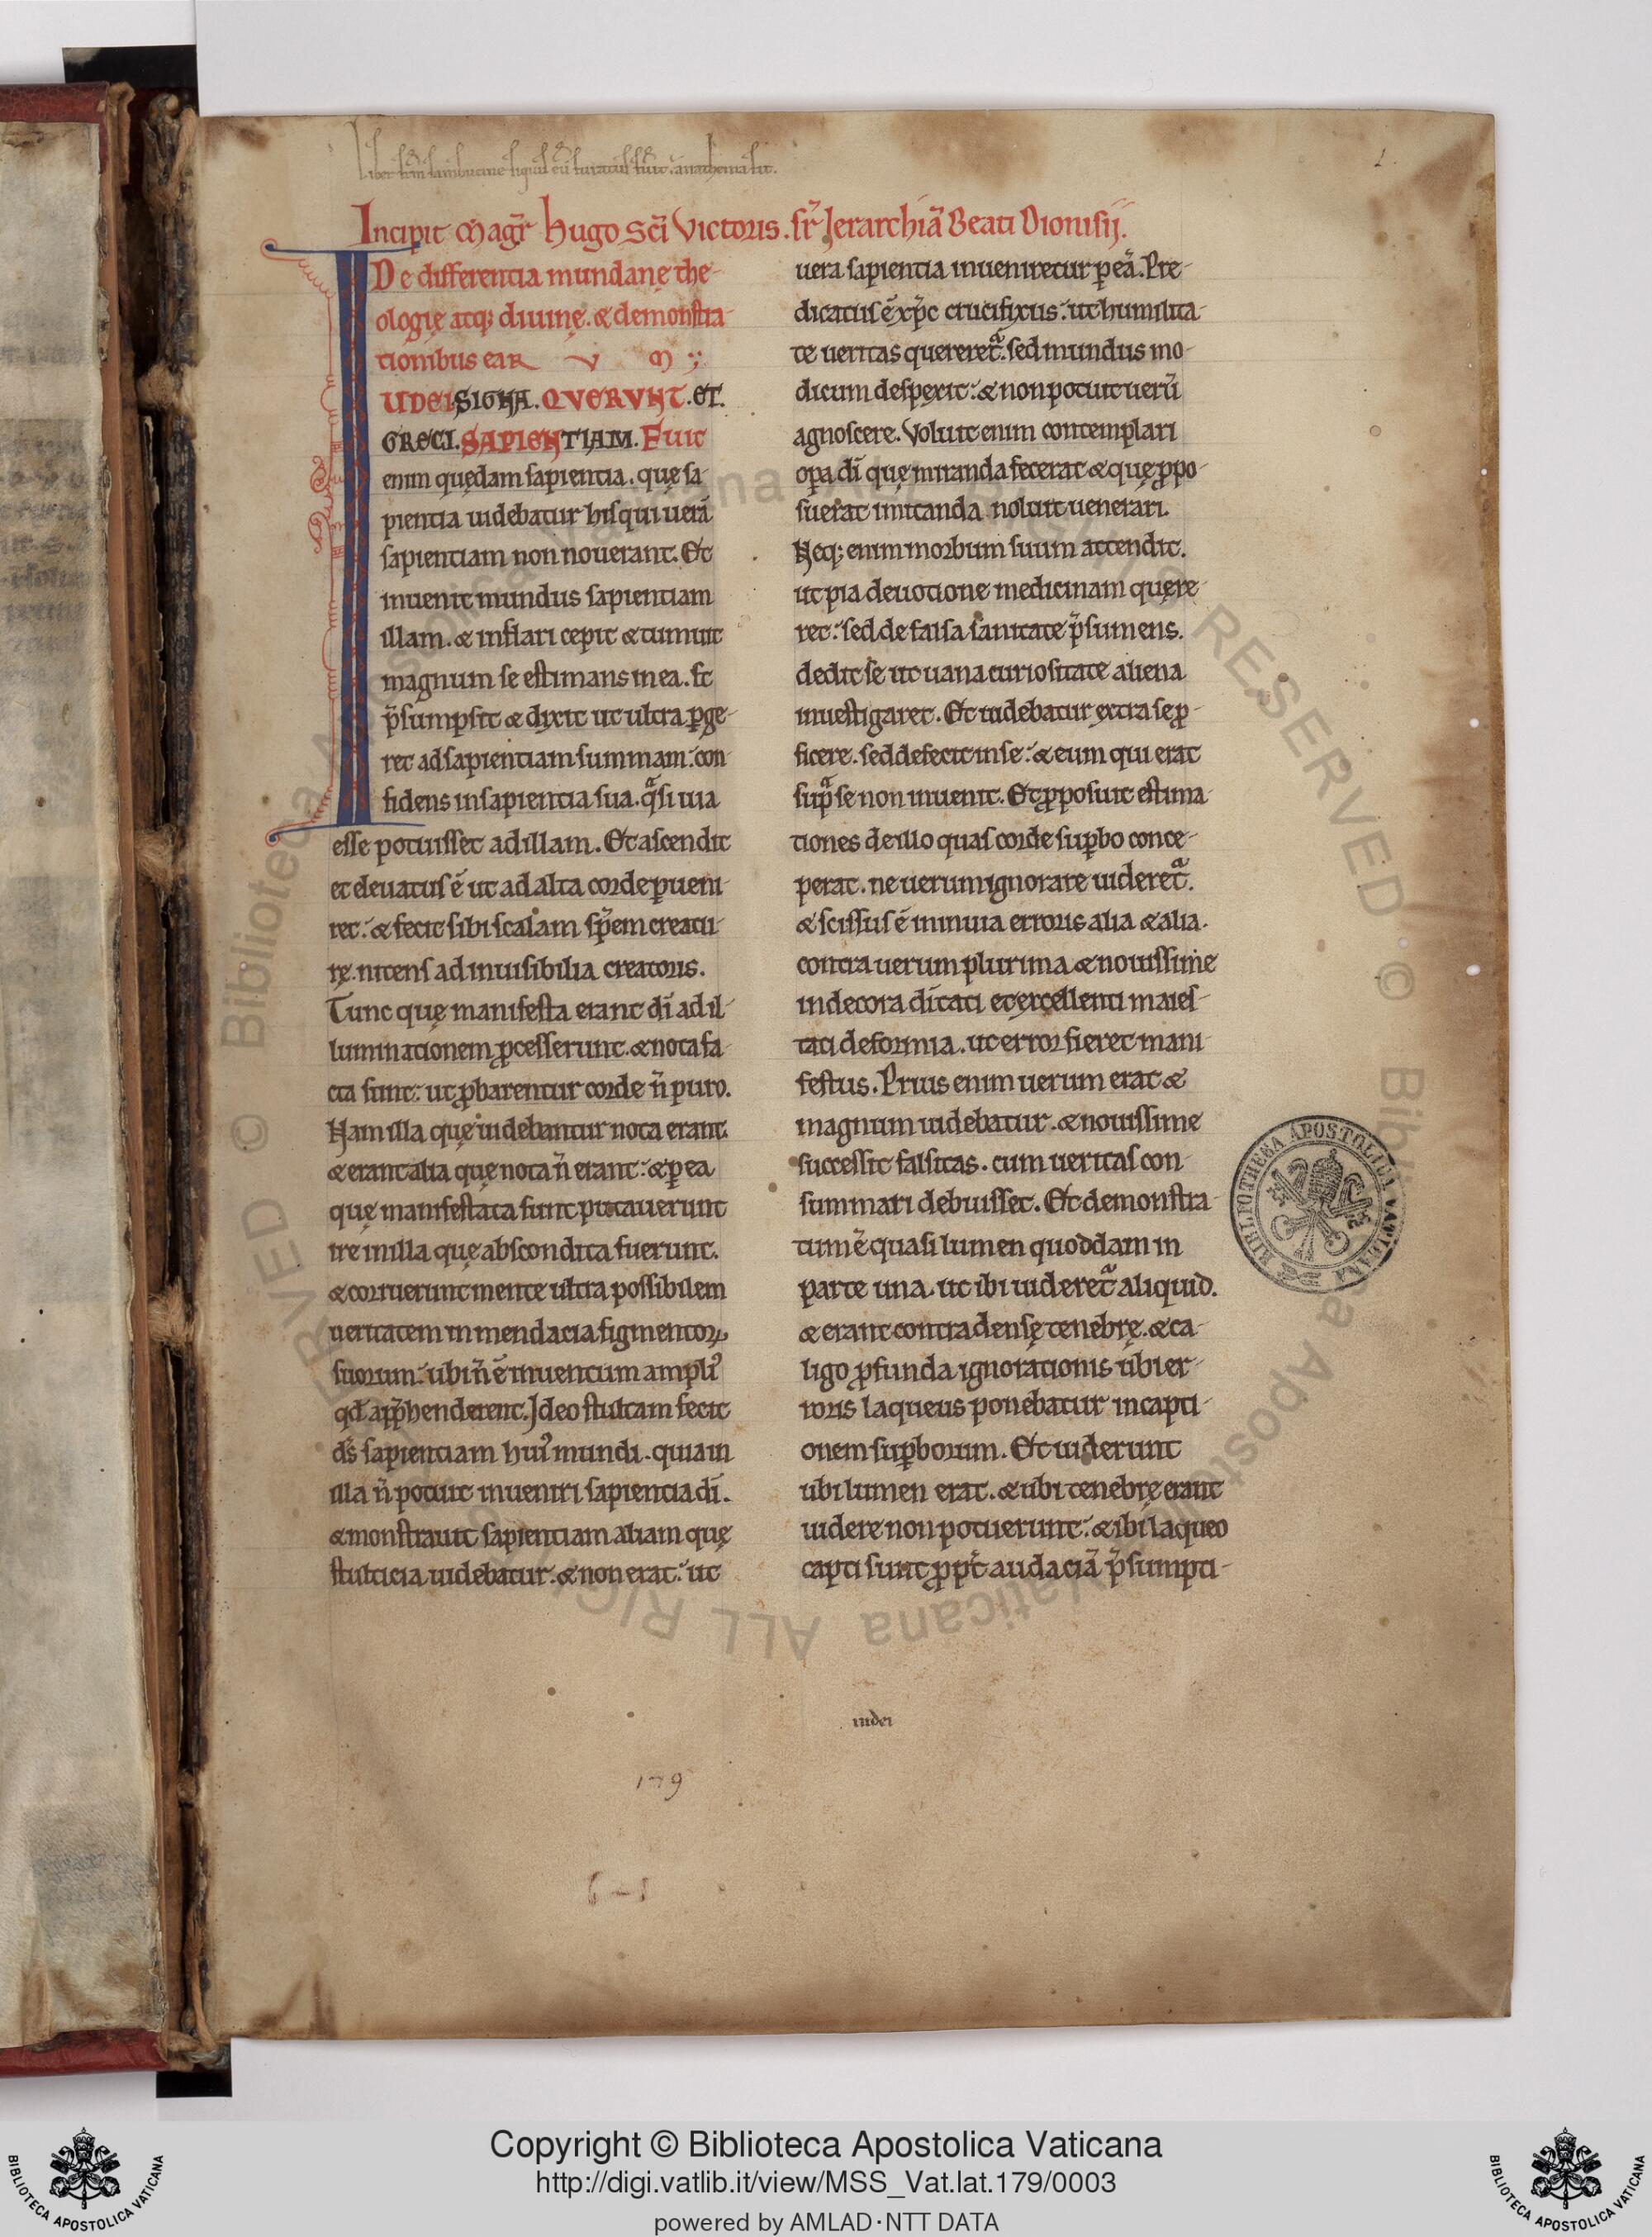 Liber scē Marie
Incipit Magr̄ hugo scī Victoris. sr̄ Ierarchiā Beati Dionisij.
De differentia mundanę the-
ologię atq; diuinę. & demonstra-
tionibus eaR V M
IUDEI SIGNA. QVERVNT. ET.
GRECI. SAPIENTIAM. Fuit
enim quędam sapientia. quę sa-
pientia uidebatur his qui uerā
sapientiam non nouerant. Et
inuenit mundus sapientiam
illam. & inflari cepit & tumuit
magnum se estimans in ea. &
p̄sumpsit & dixit ut ultra ꝑge-
ret ad sapientiam summam: con
fidens in sapientia sua. q̄si uia
esse potuisset ad illam. Et ascendit
et eleuatus ē ut ad alta corde ꝑueni-
ret: & fecit sibi scalam spēem creatu-
rę. nitens ad inuisibilia creatoris.
Tunc quę manifesta erant dī ad il-
luminationem ꝓcesserunt. & nota fa-
cta sunt: ut ꝓbarentur corde ñ puro.
Nam illa quę uidebantur nota erant.
& erant alia quę nota ñ erant: & ꝑ ea
quę manifestata sunt putauerunt
ire in illa quę abscondita fuerunt.
& corruerunt mente ultra possibilem
ueritatem in mendacia figmentoꝝ
suorum: ubi ñ ē inuentum ampliꝰ
qd̄ app̄henderent. Ideo stultam fecit
ds̄ sapientiam huiꝰ mundi. quia in
illa ñ potuit inueniri sapientia dī.
& monstrauit sapientiam aliam quę
stulticia uidebatur. & non erat: ut
uera sapientia inueniretur ꝑ eā. Pre-
dicatus ē xp̄c crucifixus: ut humilita-
te ueritas quereret̄. sed mundus ino-
dicum despexit: & non potuit uerū
agnoscere. Voluit enim contemplari
oꝑa dī quę miranda fecerat & quę ꝓpo-
suerat imitanda noluit uenerari.
Neq; enim morbum suum attendit.
ut pia deuotione medicinam quere-
ret: sed de falsa sanitate p̄sumens.
dedit se ut uana curiositate aliena
inuestigaret. Et uidebatur extra se ꝓ-
ficere. sed defecit in se: & eum qui erat
sup̄ se non inuenit. Et ꝓposuit estima-
tiones de illo quas corde suꝑbo conce-
perat. ne uerum ignorare uideret̄.
& scissus ē in inuia erroris alia & alia.
contra uerum plurima & nouissime
indecora dicati et excellenti maies-
tati deformia. ut error fieret mani-
festus. Prius enim uerum erat &
magnum uidebatur. & nouissime
successit falsitas. cum ueritas con-
summari debuisset. Et demonstra-
tum ē quasi lumen quoddam in
parte una. ut ibi uideret̄ aliquid.
& erant contra densę tenebrę. & ca-
ligo ꝓfunda ignorationis ubi er-
roris laqueus ponebatur in capti-
onem suꝑborum. Et uiderunt
ubi lumen erat. & ubi tenebrę erant
uidere non potuerunt: & ibi laqueo
capti sunt ꝓpt̄ audaciā p̄sumpti-
iudei
179
BIBLIOTHECA APOSTOLICA VATICANA
Copyright © Biblioteca Apostolica Vaticana
http://digi.vatlib.it/view/MSS_Vat.lat.179/0003
powered by AMLAD·NTT DATA
BIBLIOTECA APOSTOLICA VATICANA
BIBLIOTECA APOSTOLICA VATICANA